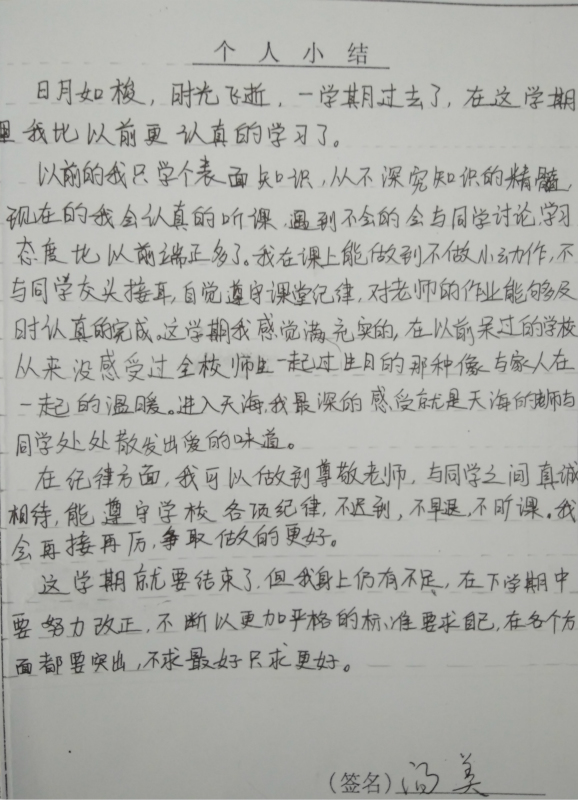 个人小结
日月如梭，时光飞逝，一学期过去了，在这学期
里我比以前更认真的学习了。
以前的我只学个表面知识，从不深究知识的精髓，
现在的我会认真的听课，遇到不会的会与同学讨论，学习
态度比以前端正多了。我在课上能做到不做小动作，不
与同学交头接耳，自觉遵守课堂纪律，对老师的作业能够及
时认真的完成。这学期我感觉满充实的，在以前呆过的学校
从来没感受过全校师生一起过生日的那种像与家人在
一起的温暖。进入天海，我最深的感受就是天海的老师与
同学处处散发出爱的味道。
在纪律方面，我可以做到尊敬老师，与同学之间真诚
相待，能遵守学校各项纪律，不迟到，不早退，不旷课。我
会再接再厉，争取做的更好。
这学期就要结束了，但我身上仍有不足，在下学期中
要努力改正，不断以更加严格的标准要求自己，在各个方
面都要突出，不求最好只求更好。
（签名）冯美